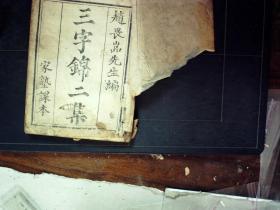 趙畏嵓先生編
三字錦二集
家塾課本